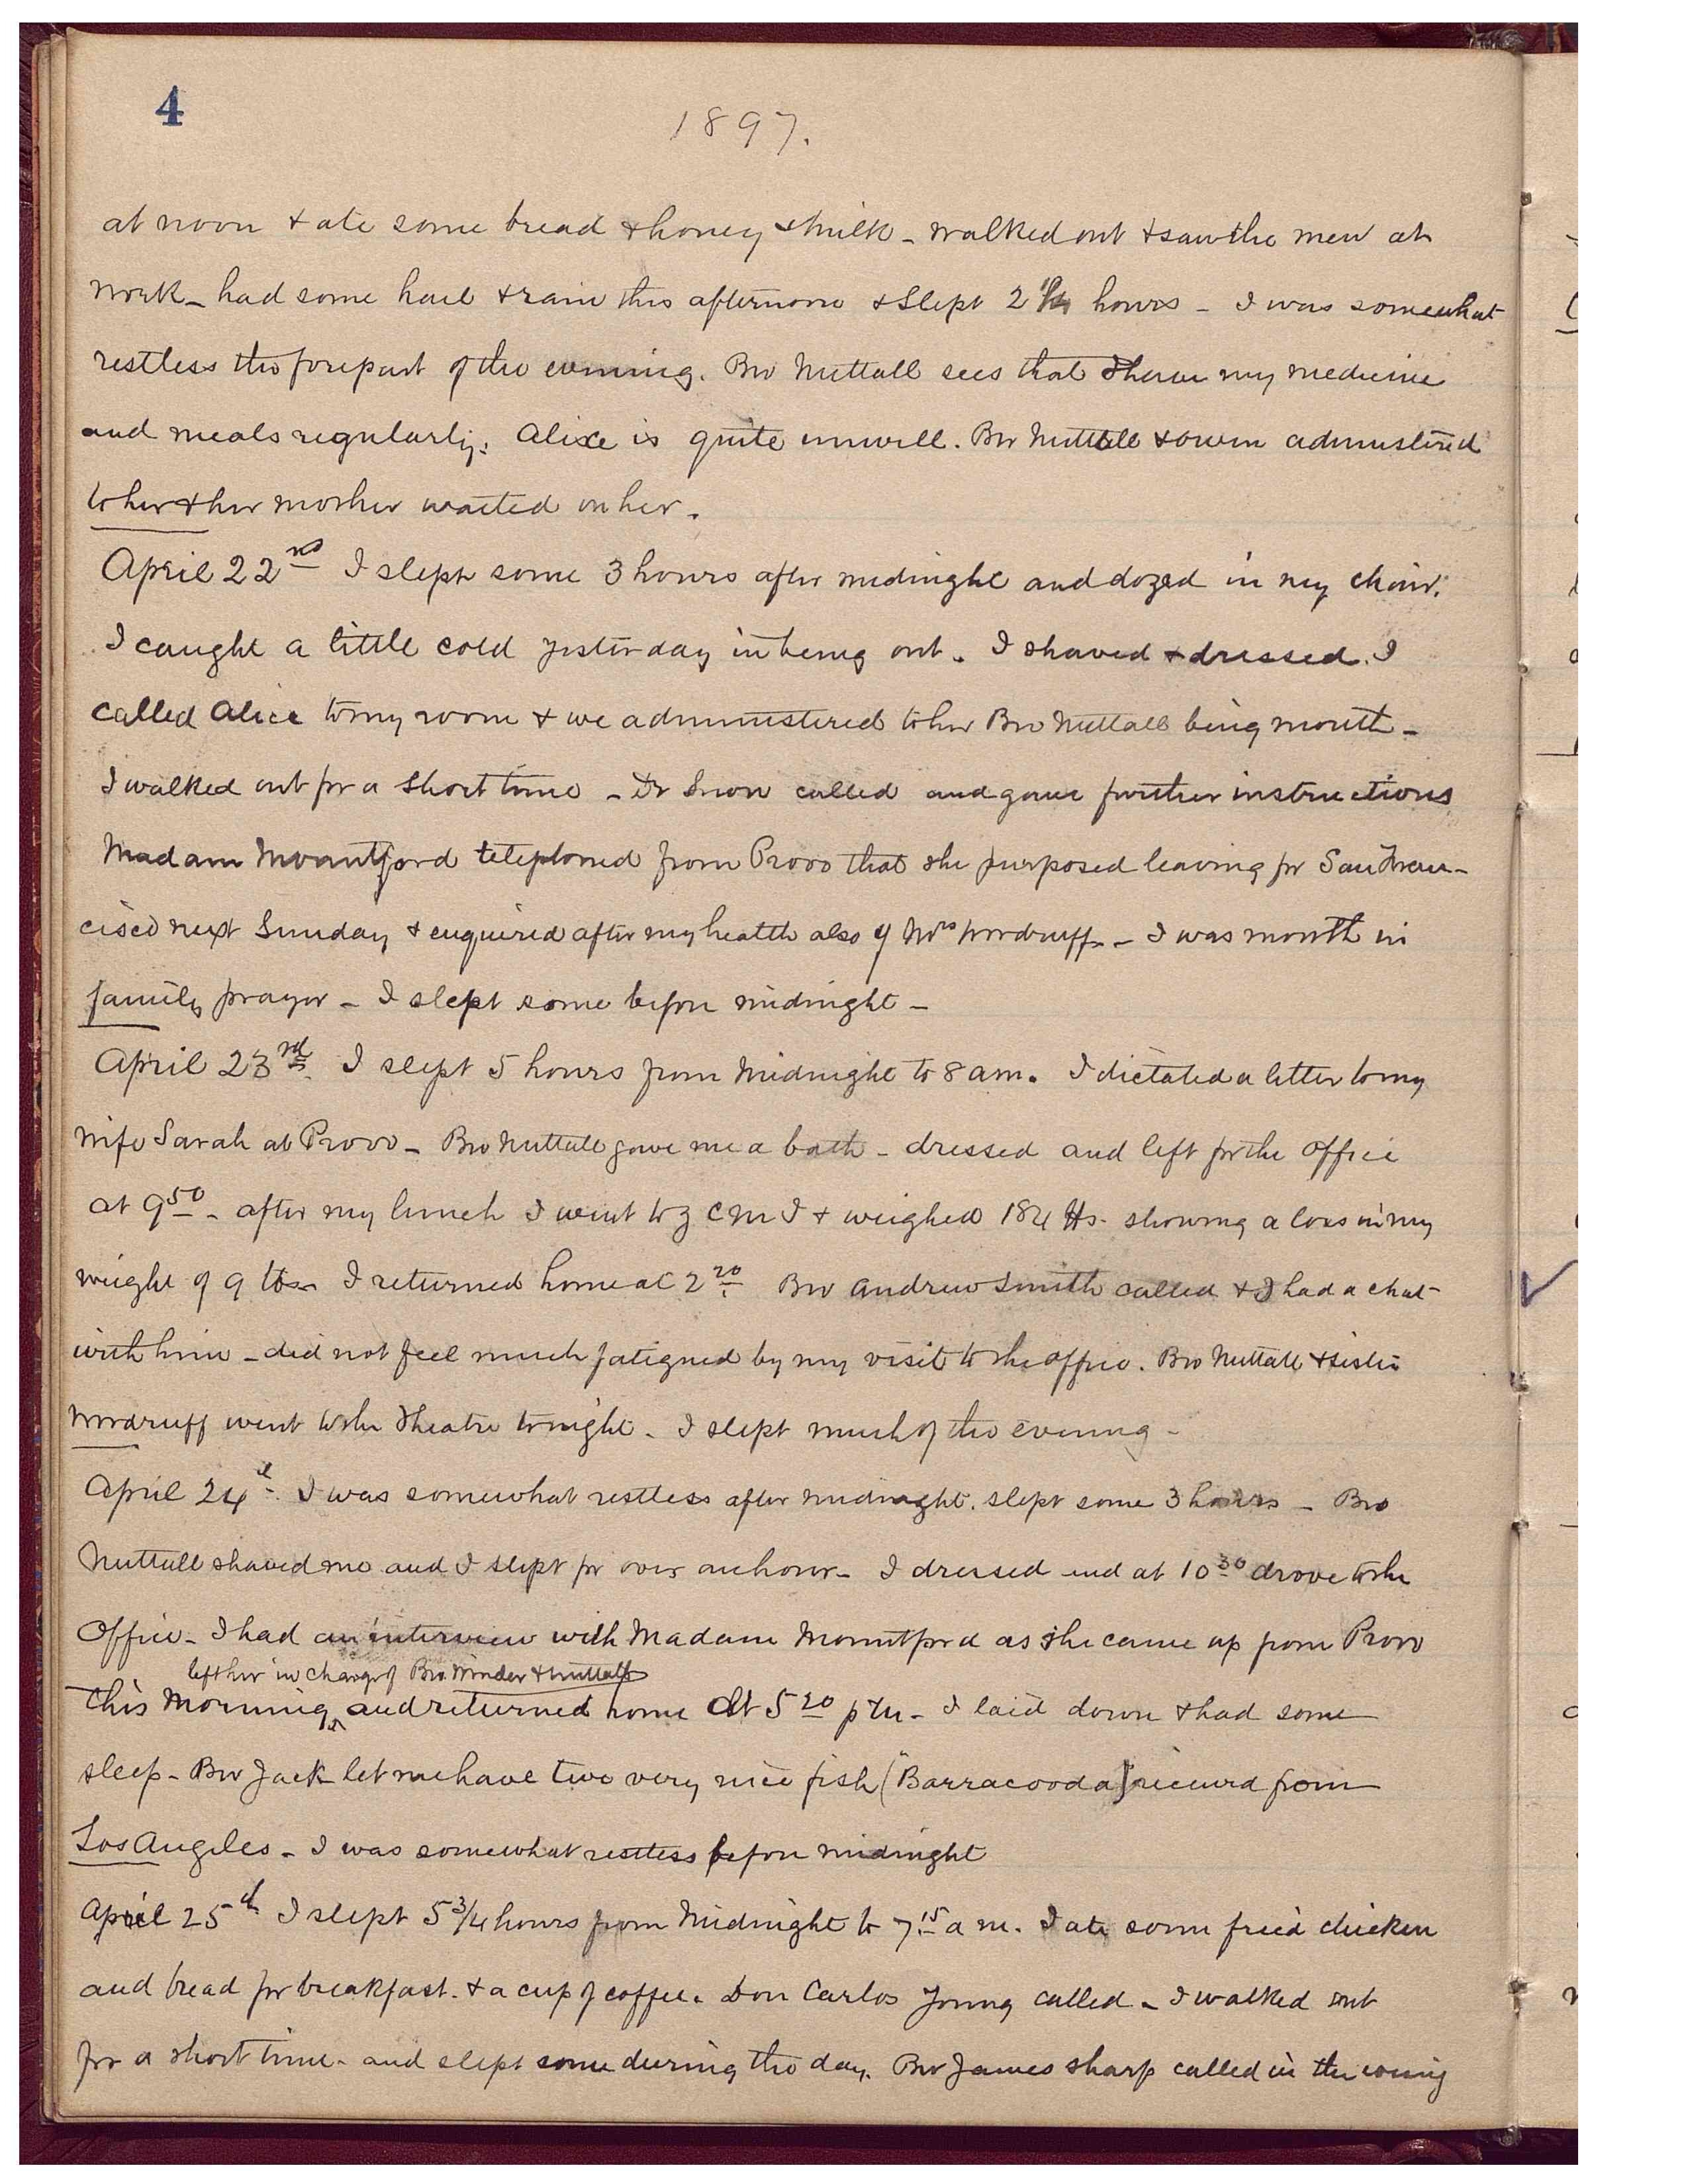 4
1897.
at noon & ate some bread & honey & milk - walked out & saw the men at
work - had some hail & rain this afternoon & slept 2 1/4 hours - I was somewhat
restless the forepart of the evening. Bro Nuttall sees that I have my medicine
and meals regularly. Alice is quite unwell. Bro Nuttall & Owen administered
to her & her mother waited on her.
April 22nd I slept some 3 hours after midnight and dozed in my chair.
I caught a little cold yesterday in being out. I shaved & dressed. I
called Alice to my room & we administered to her Bro Nuttall being mouth -
I walked out for a short time - Dr Snow called and gave further instructions
Madam Mountford telephoned from Provo that she purposed leaving for San Fran-
cisco next Sunday & enquired after my health also of Mrs Woodruff - I was mouth in
family prayer - I slept some before midnight -
April 23rd. I slept 5 hours from Midnight to 8 am. I dictated a letter to my
wife Sarah at Provo - Bro Nuttall gave me a bath - dressed and left for the Office
at 9 50 - after my lunch I went to Z C M I & weighed 184 lbs. showing a loss in my
weight of 9 lbs - I returned home at 2 20 Bro Andrew Smith called & I had a chat
with him - did not feel much fatigued by my visit to the office. Bro Nuttall & Sister
Woodruff went to the Theatre tonight. I slept much of the evening -
April 24th. I was somewhat restless after midnight. slept some 3 hours - Bro
Nuttall shaved me and I slept for over an hour - I dressed and at 10 30 drove to the
Office - I had an interview with Madam Mountford as she came up from Provo
left her in charge of Bro. Winder & Nuttall
this Morning ^ and returned home at 5 20 p m - I laid down & had some
sleep - Bro Jack let me have two very nice fish (Barracooda) received from
Los Angeles - I was somewhat restless before midnight
April 25th I slept 5 3/4 hours from Midnight to 7 15 a m. I ate some fried chicken
and bread for breakfast. & a cup of coffee. Don Carlos Young called - I walked out
for a short time - and slept some during the day. Bro James Sharp called in the evening